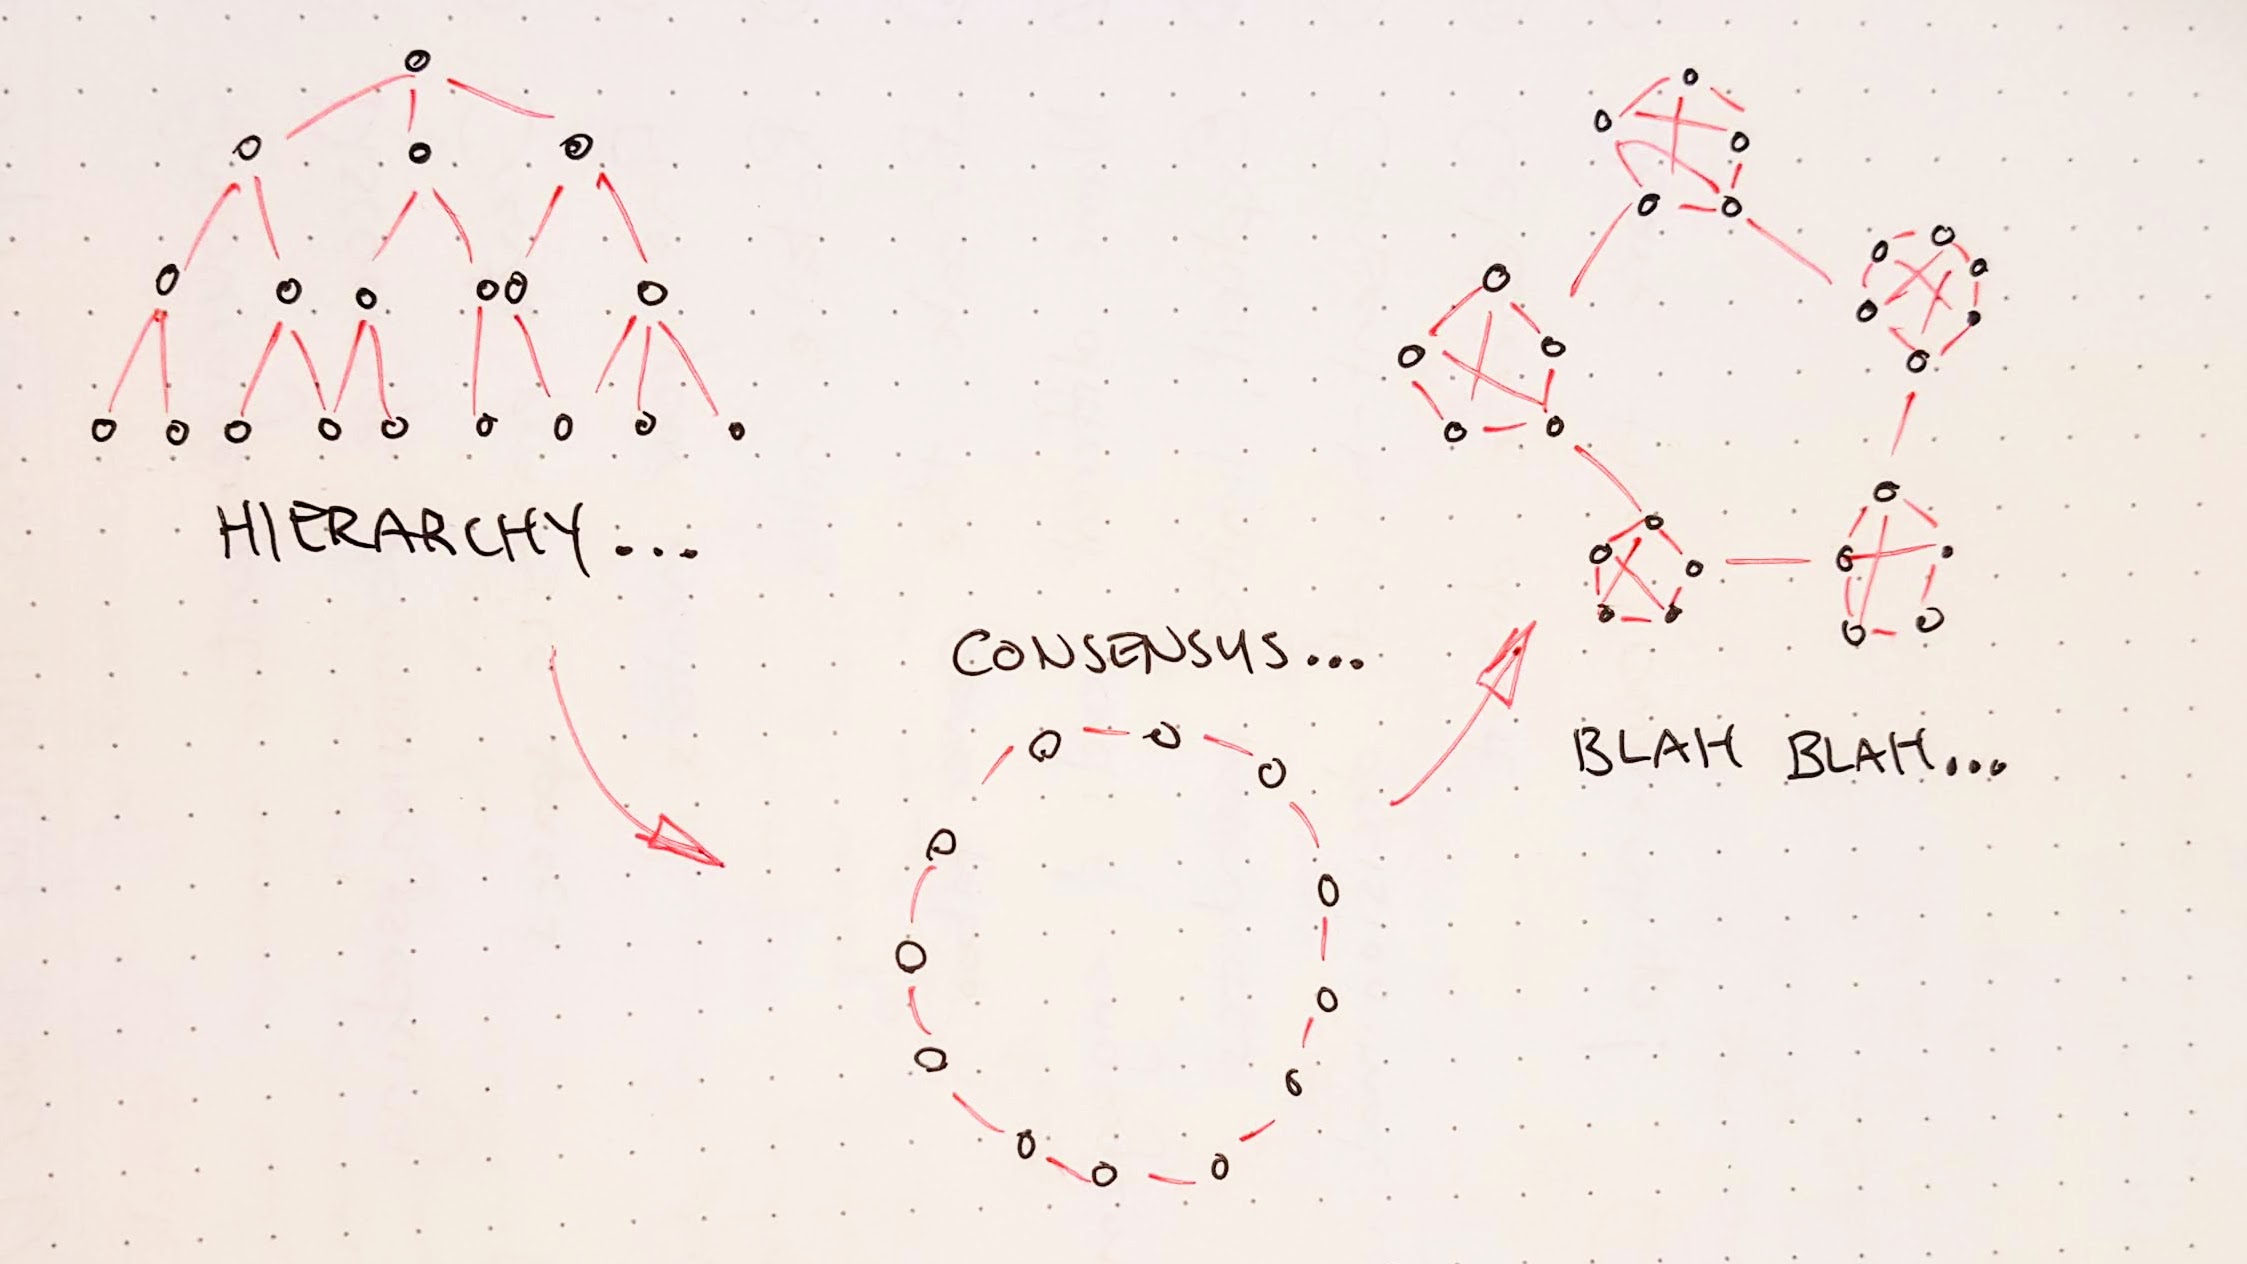 HIERARCHY...
CONSENSUS...
BLAH BLAH...